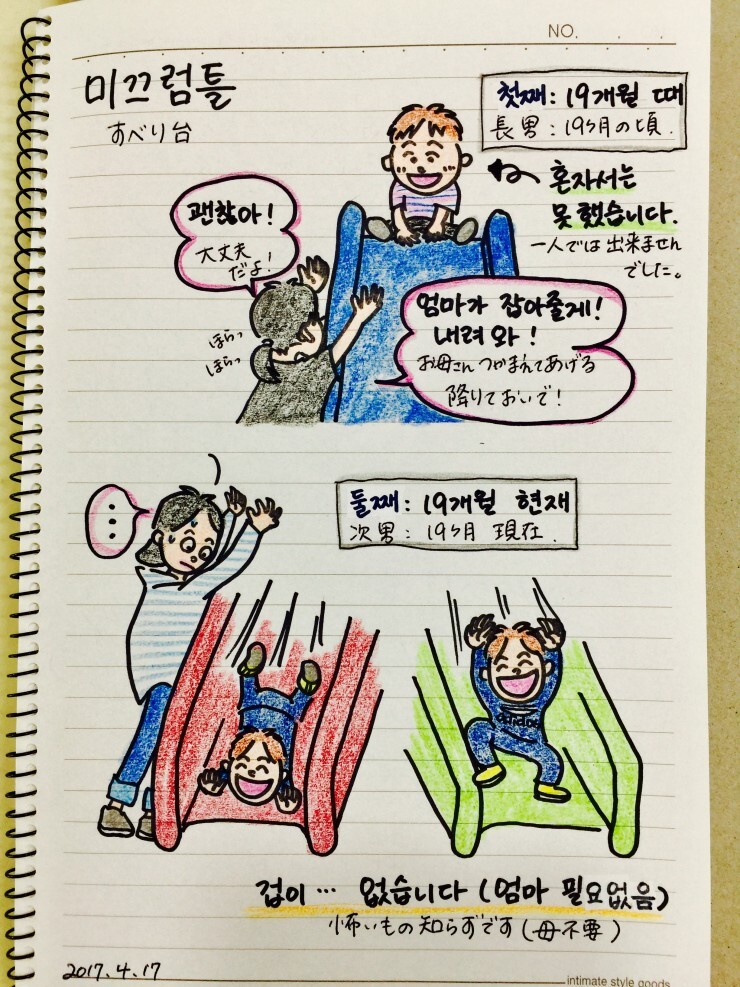 NO.
미끄럼틀
すべり台
첫째: 19개월 때
長男: 19ヶ月の頃.
혼자서는
못 했습니다.
一人では 出来ません
でした。
괜찮아!
大丈夫
だよ!
ほらっ
ほらっ
엄마가 잡아줄게!
내려 와!
お母さん つかまえてあげる
降りておいで!
...
둘째: 19개월 현재
次男: 19ヶ月 現在.
adidas
겁이… 없습니다 (엄마 필요없음)
怖いもの知らずです (母不要)
2017.4.17
intimate style goods